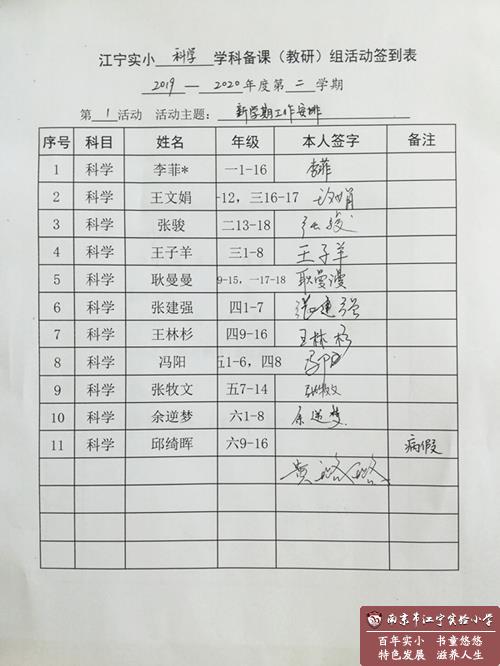 江宁实小 科学 学科备课（教研）组活动签到表
2019 — 2020 年度第 二 学期
第 1 活动 活动主题： 新学期工作安排
序号 科目 姓名 年级 本人签字 备注
1 科学 李菲* 一1-16 李菲
2 科学 王文娟 -12, 三16-17
3 科学 张骏 二13-18 张骏
4 科学 王子羊 三1-8 王子羊
5 科学 耿曼曼 9-15, 一17-18 耿曼漫
6 科学 张建强 四1-7 张建强
7 科学 王林杉 四9-16 王林杉
8 科学 冯阳 五1-6, 四8 冯阳
9 科学 张牧文 五7-14 张牧文
10 科学 余逆梦 六1-8 余逆梦
11 科学 邱绮晖 六9-16 病假
黄璐璐
南京市江宁实验小学
百年实小 书童悠悠
特色发展 滋养人生